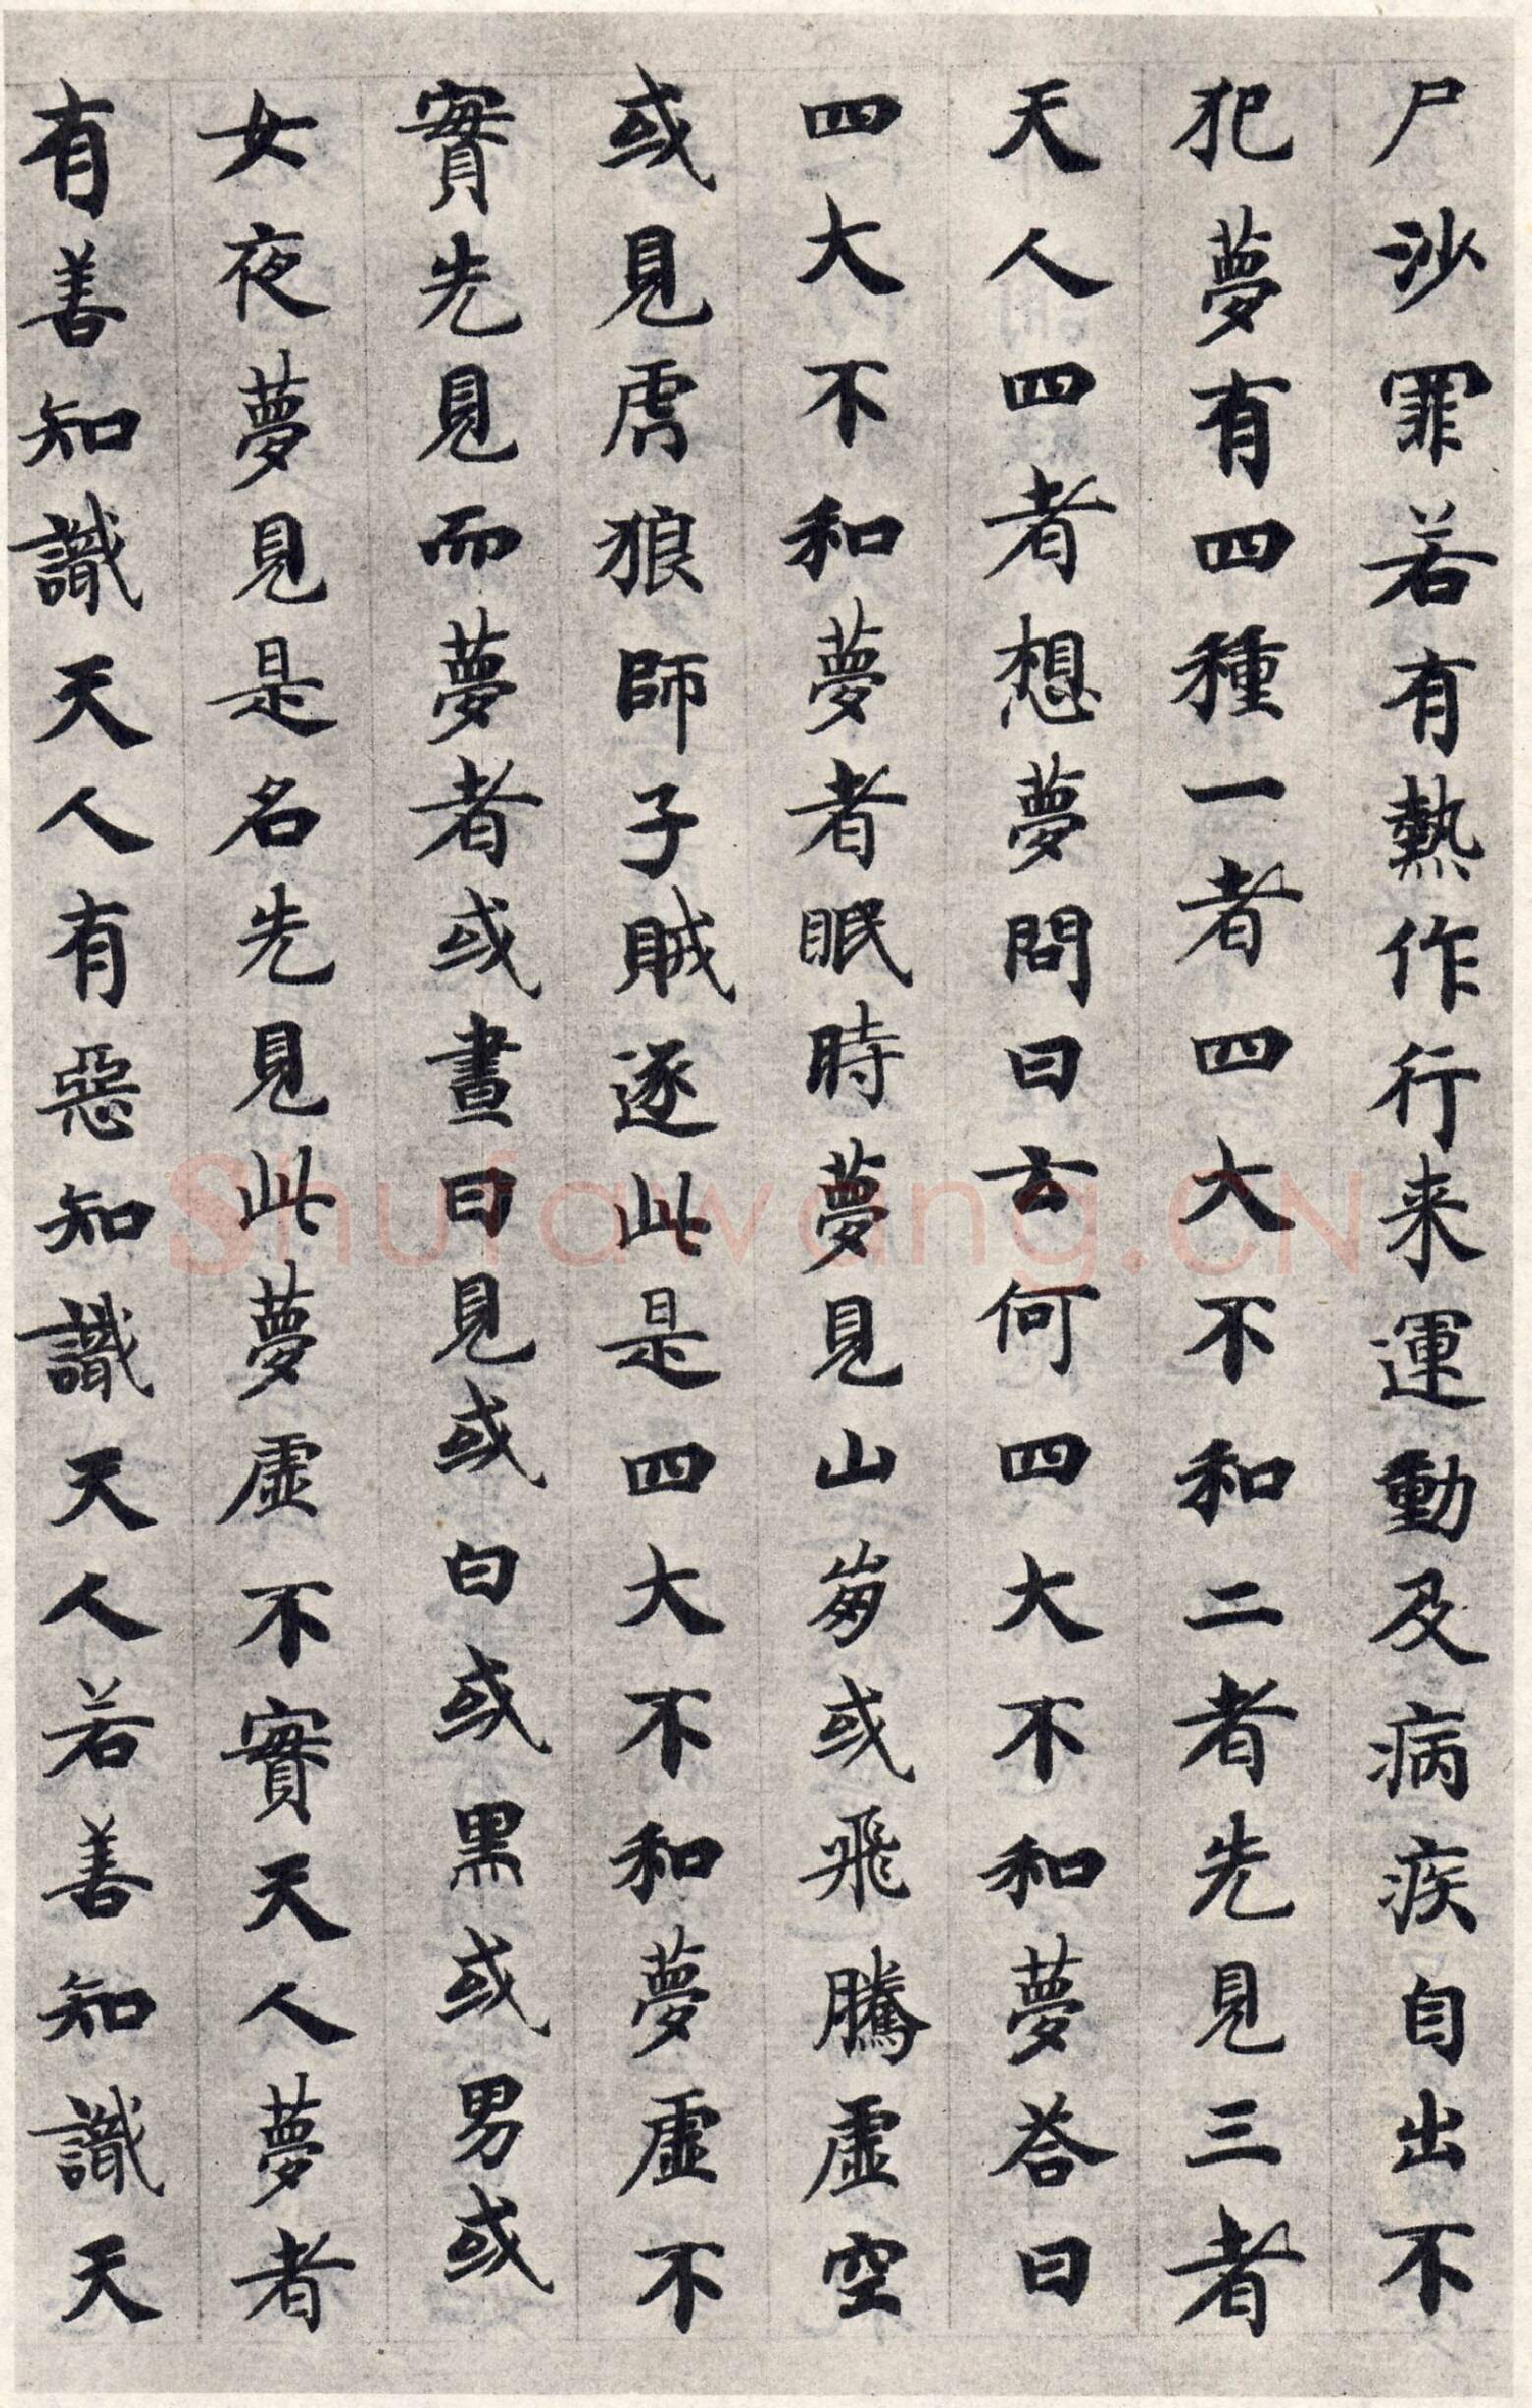 尸沙罪若有熱作行来運動及病疾自出不
犯夢有四種一者四大不和二者先見三者
天人四者想夢問曰云何四大不和夢荅曰
四大不和夢者眠時夢見山崩或飛騰虛空
或見虎狼師子賊逐此是四大不和夢虛不
實先見而夢者或晝日見或白或黑或男或
女夜夢見是名先見此夢虛不實天人夢者
有善知識天人有惡知識天人若善知識天
Shufawang.CN